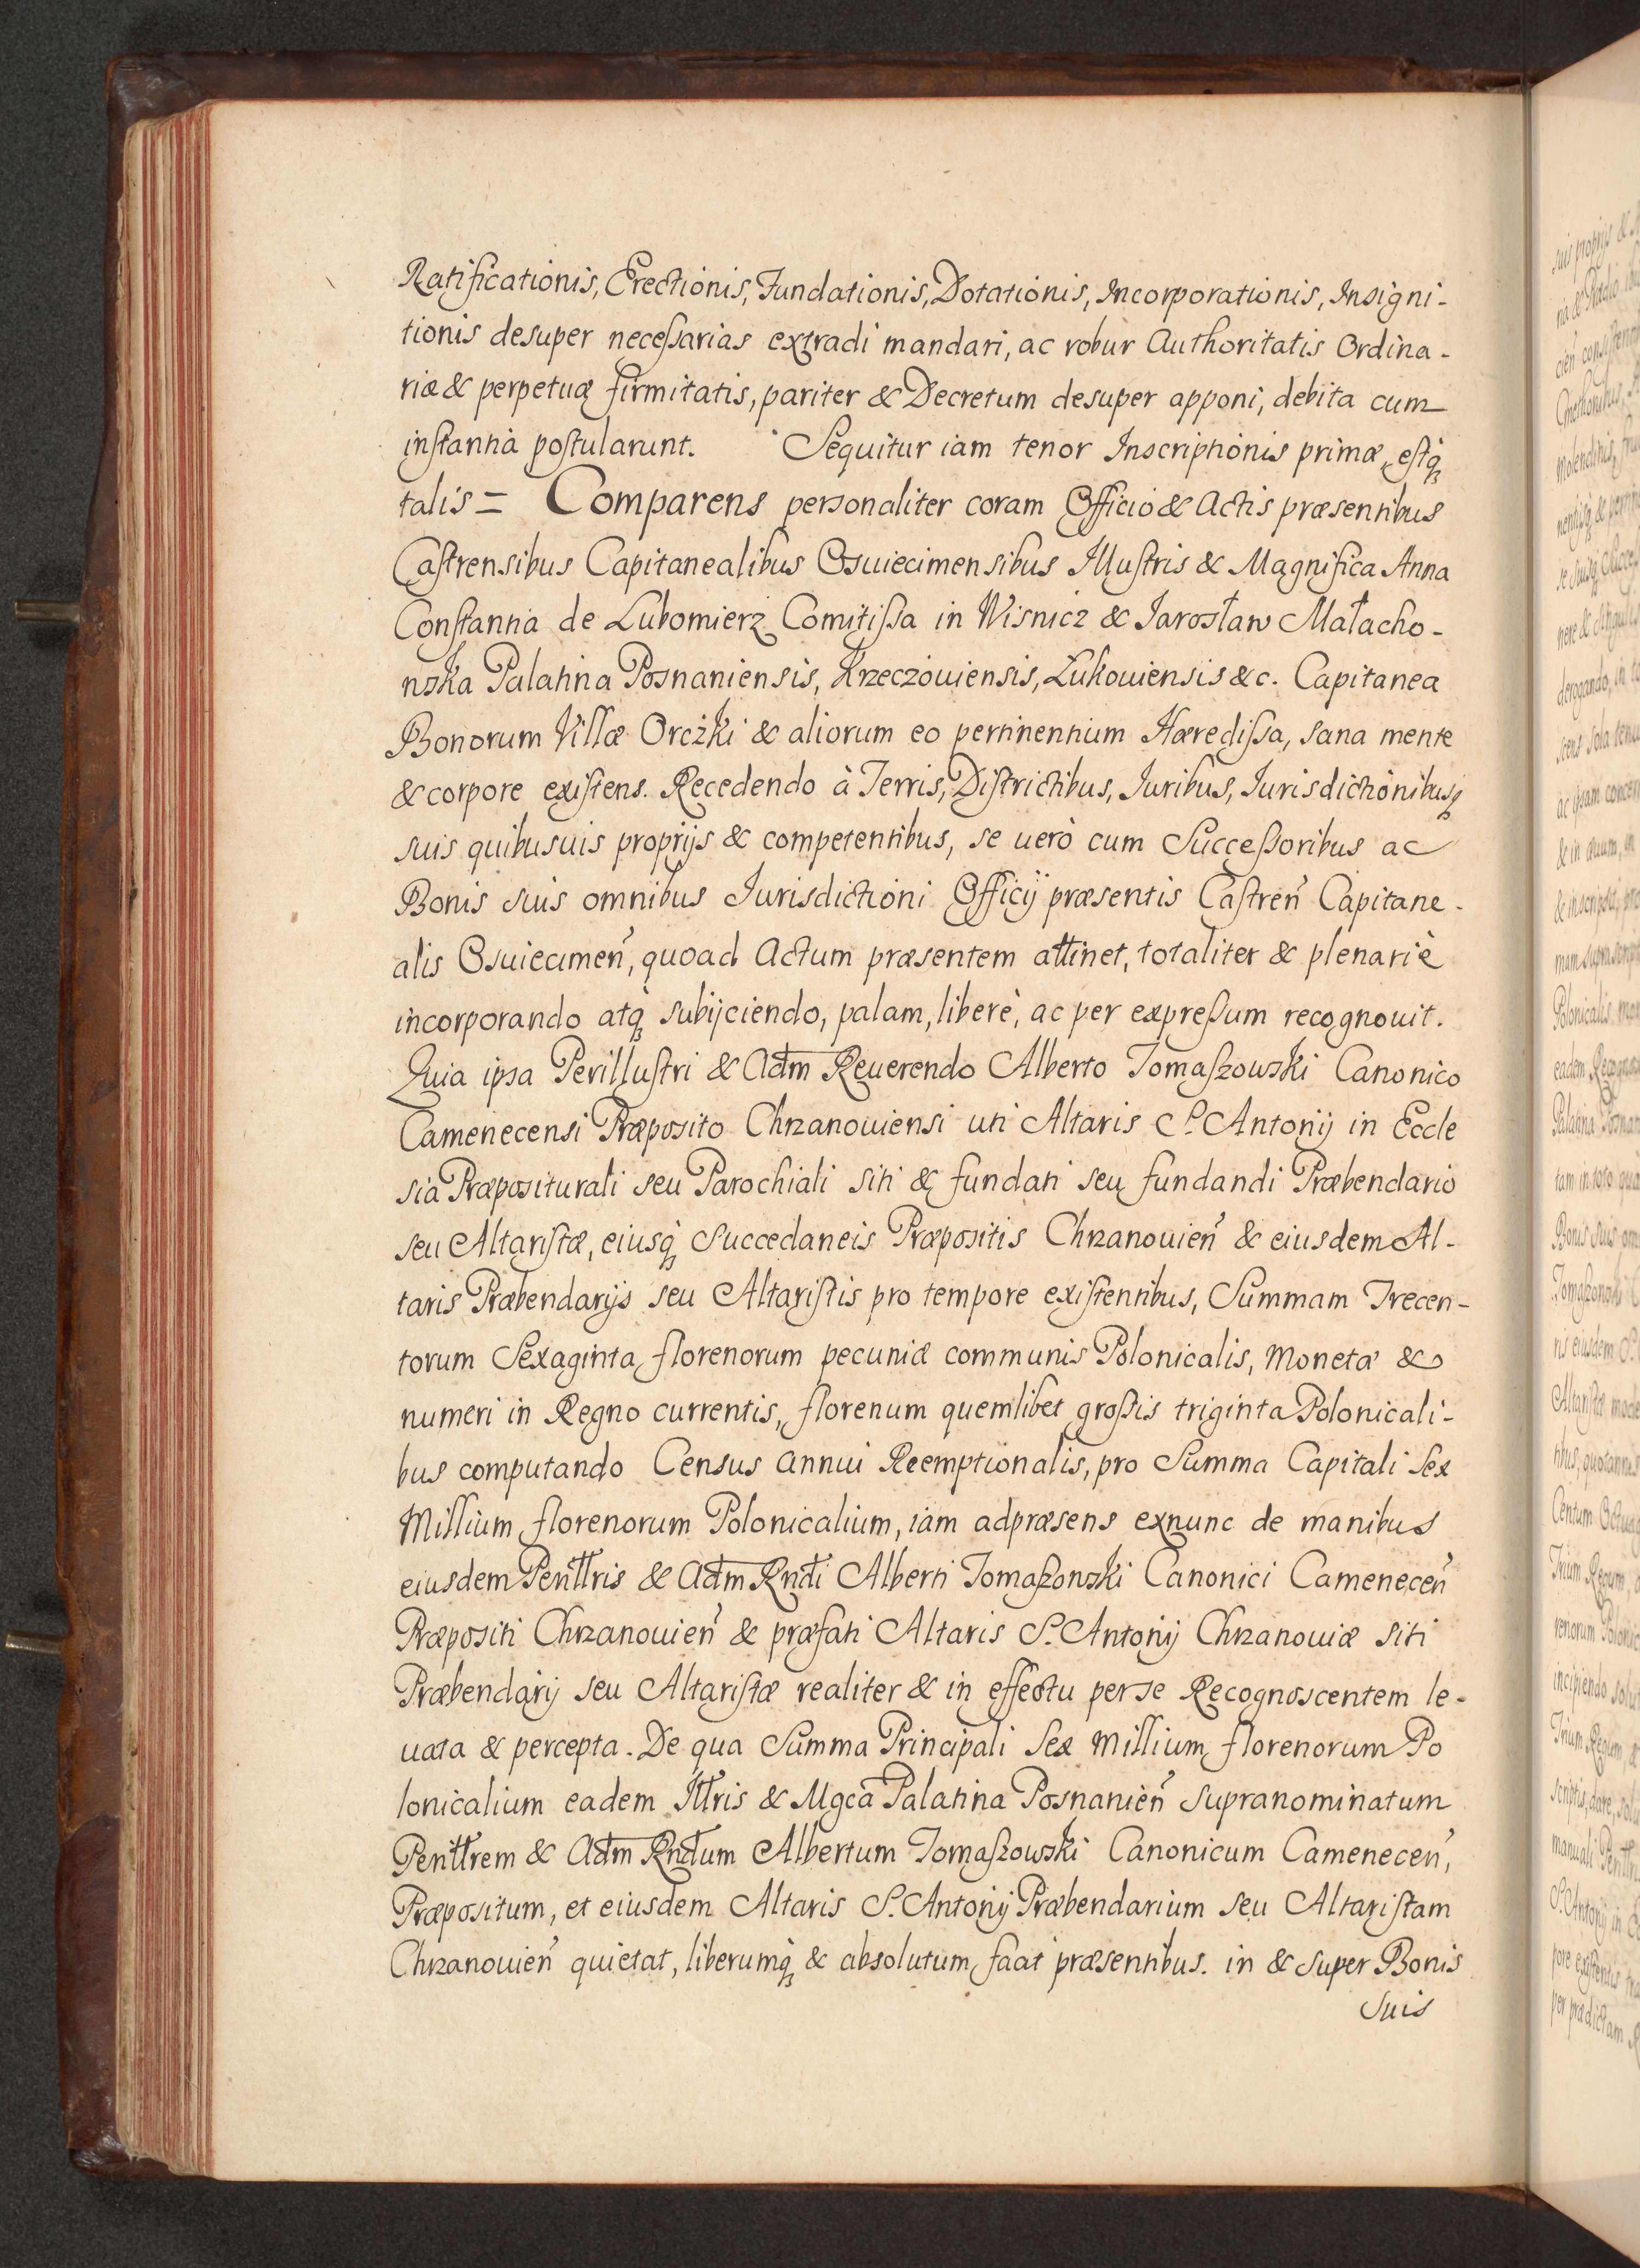 Ratificationis, Erectionis, Fundationis, Dotationis, Incorporationis, Insigni-
tionis desuper neceſsarias extradi mandari, ac robur Authoritatis Ordina-
riæ & perpetuæ firmitatis, pariter & Decretum desuper apponi, debita cum
inſtantia poſtularunt. Sequitur iam tenor Inscriptionis primæ, eſtq̃
talis = Comparens personaliter coram Officio & Actis præsentibus
Caſtrensibus Capitanealibus Osuiecimensibus Illuſtris & Magnifica Anna
Conſtantia de Lubomierz Comitiſsa in Wisnicz & Jarosław Małacho-
wska Palatina Posnaniensis, Krzeczouiensis, Łukouiensis &c. Capitanea
Bonorum Villæ Orczki & aliorum eo pertinentium Hæredißa, sana mente
& corpore exiſtens. Recedendo à Terris, Diſtrictibus, Iuribus, Iurisdictionibusq̃
suis quibusuis proprijs & competentibus, se uerò cum Succeſsoribus ac
Bonis suis omnibus Iurisdictioni Officij præsentis Caſtren̉ Capitane-
alis Osuiecimen̉, quoad Actum præsentem attinet, totaliter & plenariè
incorporando atq̀ subijciendo, palam, liberè, ac per expreßum recognouit.
Quia ipsa Perilluſtri & Adm̄ Reuerendo Alberto Tomaßowski Canonico
Camenecensi Præposito Chrzanouiensi uti Altaris S. Antonij in Eccle
sia Præpositurali seu Parochiali siti & fundati seu fundandi Præbendario
seu Altariſtæ, eiusq̀ Succedaneis Præpositis Chrzanouien̉ & eiusdem Al-
taris Præbendarijs seu Altariſtis pro tempore exiſtentibus, Summam Trecen-
torum Sexaginta florenorum pecuniæ communis Polonicalis, Monetæ &
numeri in Regno currentis, florenum quemlibet großis triginta Polonicali-
bus computando Census Annui Reemptionalis, pro Summa Capitali Sex
Millium florenorum Polonicalium, iam adpræsens exnunc de manibus
eiusdem Perilłris & Adm̄ Rndi Alberti Tomaßowski Canonici Camenecen̉
Præpositi Chrzanouien̉ & præfati Altaris S. Antonij Chrzanouiæ siti
Præbendarij seu Altariſtæ realiter & in effectu per se Recognoscentem le-
uata & percepta. De qua Summa Principali Sex Millium florenorum Po
lonicalium eadem Iłłris & Mgcā Palatina Posnanien̉ Supranominatum
Perilłrem & Adm̄ Rndum Albertum Tomaßowski Canonicum Camenecen̉,
Præpositum, et eiusdem Altaris S. Antonij Præbendarium seu Altariſtam
Chrzanouien̉ quietat, liberumq̀ & absolutum facit præsentibus. in & super Bonis
suis